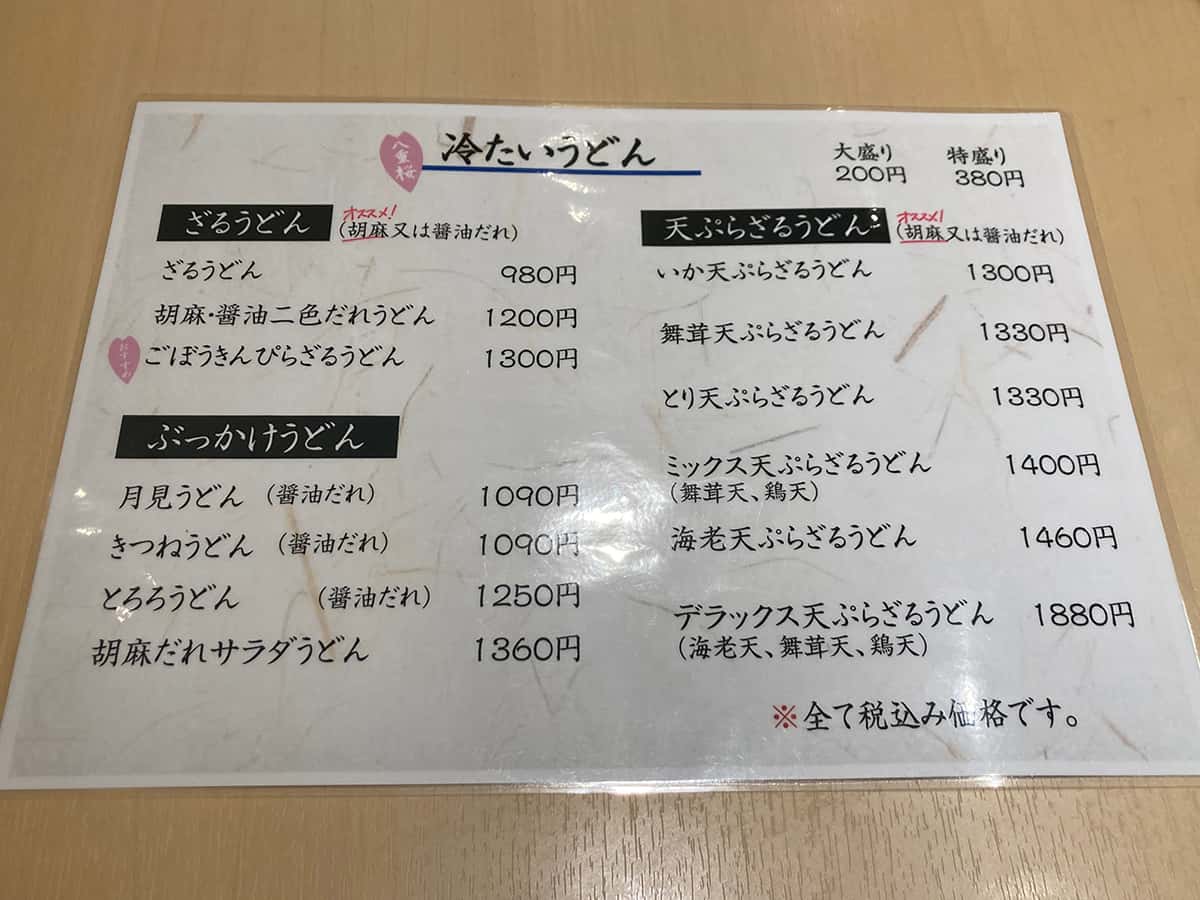 八重桜
冷たいうどん
大盛り 特盛り
200円 380円
ざるうどん
オススメ!
(胡麻又は醤油だれ)
ざるうどん 980円
胡麻・醤油二色だれうどん 1200円
おすすめ
ごぼうきんぴらざるうどん 1300円
ぶっかけうどん
月見うどん (醤油だれ) 1090円
きつねうどん (醤油だれ) 1090円
とろろうどん (醤油だれ) 1250円
胡麻だれサラダうどん 1360円
天ぷらざるうどん
オススメ!
(胡麻又は醤油だれ)
いか天ぷらざるうどん 1300円
舞茸天ぷらざるうどん 1330円
とり天ぷらざるうどん 1330円
ミックス天ぷらざるうどん 1400円
(舞茸天、鶏天)
海老天ぷらざるうどん 1460円
デラックス天ぷらざるうどん 1880円
(海老天、舞茸天、鶏天)
※全て税込み価格です。